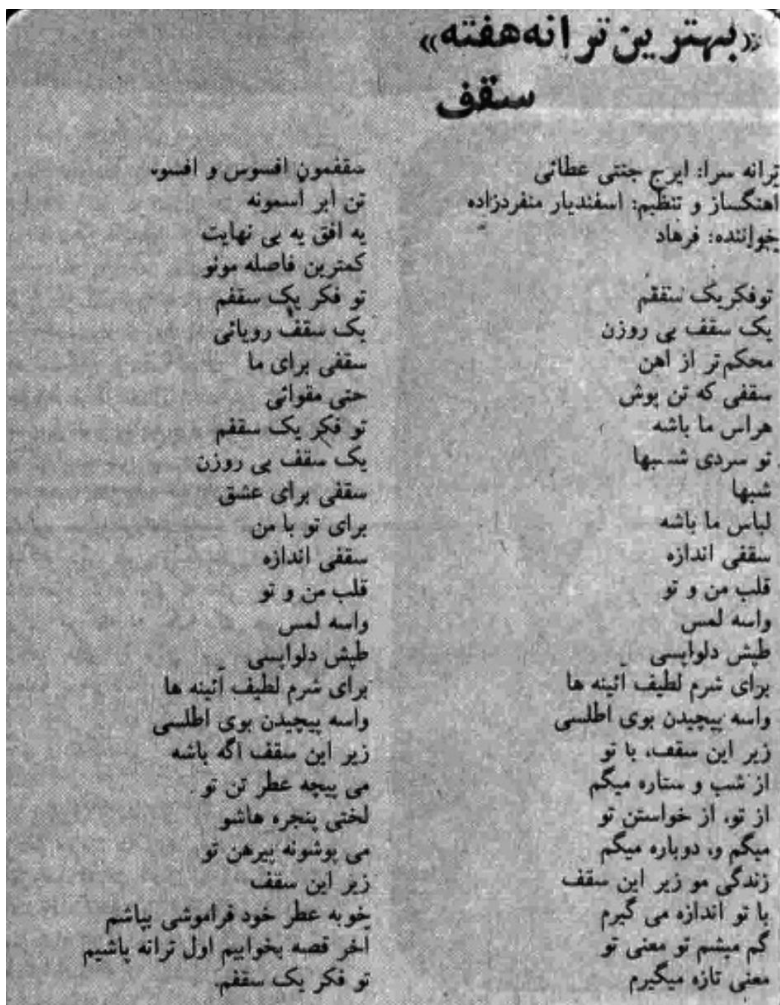 «بهترین ترانه هفته»
سقف
ترانه سرا: ایرج جنتی عطائی
اهنگساز و تنظیم: اسفندیار منفردزاده
خواننده: فرهاد
توفکریک سقفم
یک سقف بی روزن
محکم‌تر از اهن
سقفی که تن پوش
هراس ما باشه
تو سردی شبها
شبها
لباس ما باشه
سقفی اندازه
قلب من و تو
واسه لمس
طپش دلواپسی
برای شرم لطیف آئینه ها
واسه پیچیدن بوی اطلسی
زیر این سقف، با تو
از شب و ستاره میگم
از تو، از خواستن تو
میگم و، دوباره میگم
زندگی مو زیر این سقف
با تو اندازه می گیرم
گم میشم تو معنی تو
معنی تازه میگیرم
سقفمون افسوس و افسو
تن ابر آسمونه
یه افق یه بی نهایت
کمترین فاصله مونو
تو فکر یک سقفم
یک سقف رویائی
سقفی برای ما
حتی مقوائی
تو فکر یک سقفم
یک سقف بی روزن
سقفی برای عشق
برای تو با من
سقفی اندازه
قلب من و تو
واسه لمس
طپش دلواپسی
برای شرم لطیف آئینه ها
واسه پیچیدن بوی اطلسی
زیر این سقف اگه باشه
می پیچه عطر تن تو
لختی پنجره هاشو
می پوشونه پیرهن تو
زیر این سقف
خوبه عطر خود فراموشی بپاشم
اخر قصه بخوابیم اول ترانه پاشیم
تو فکر یک سقفم.